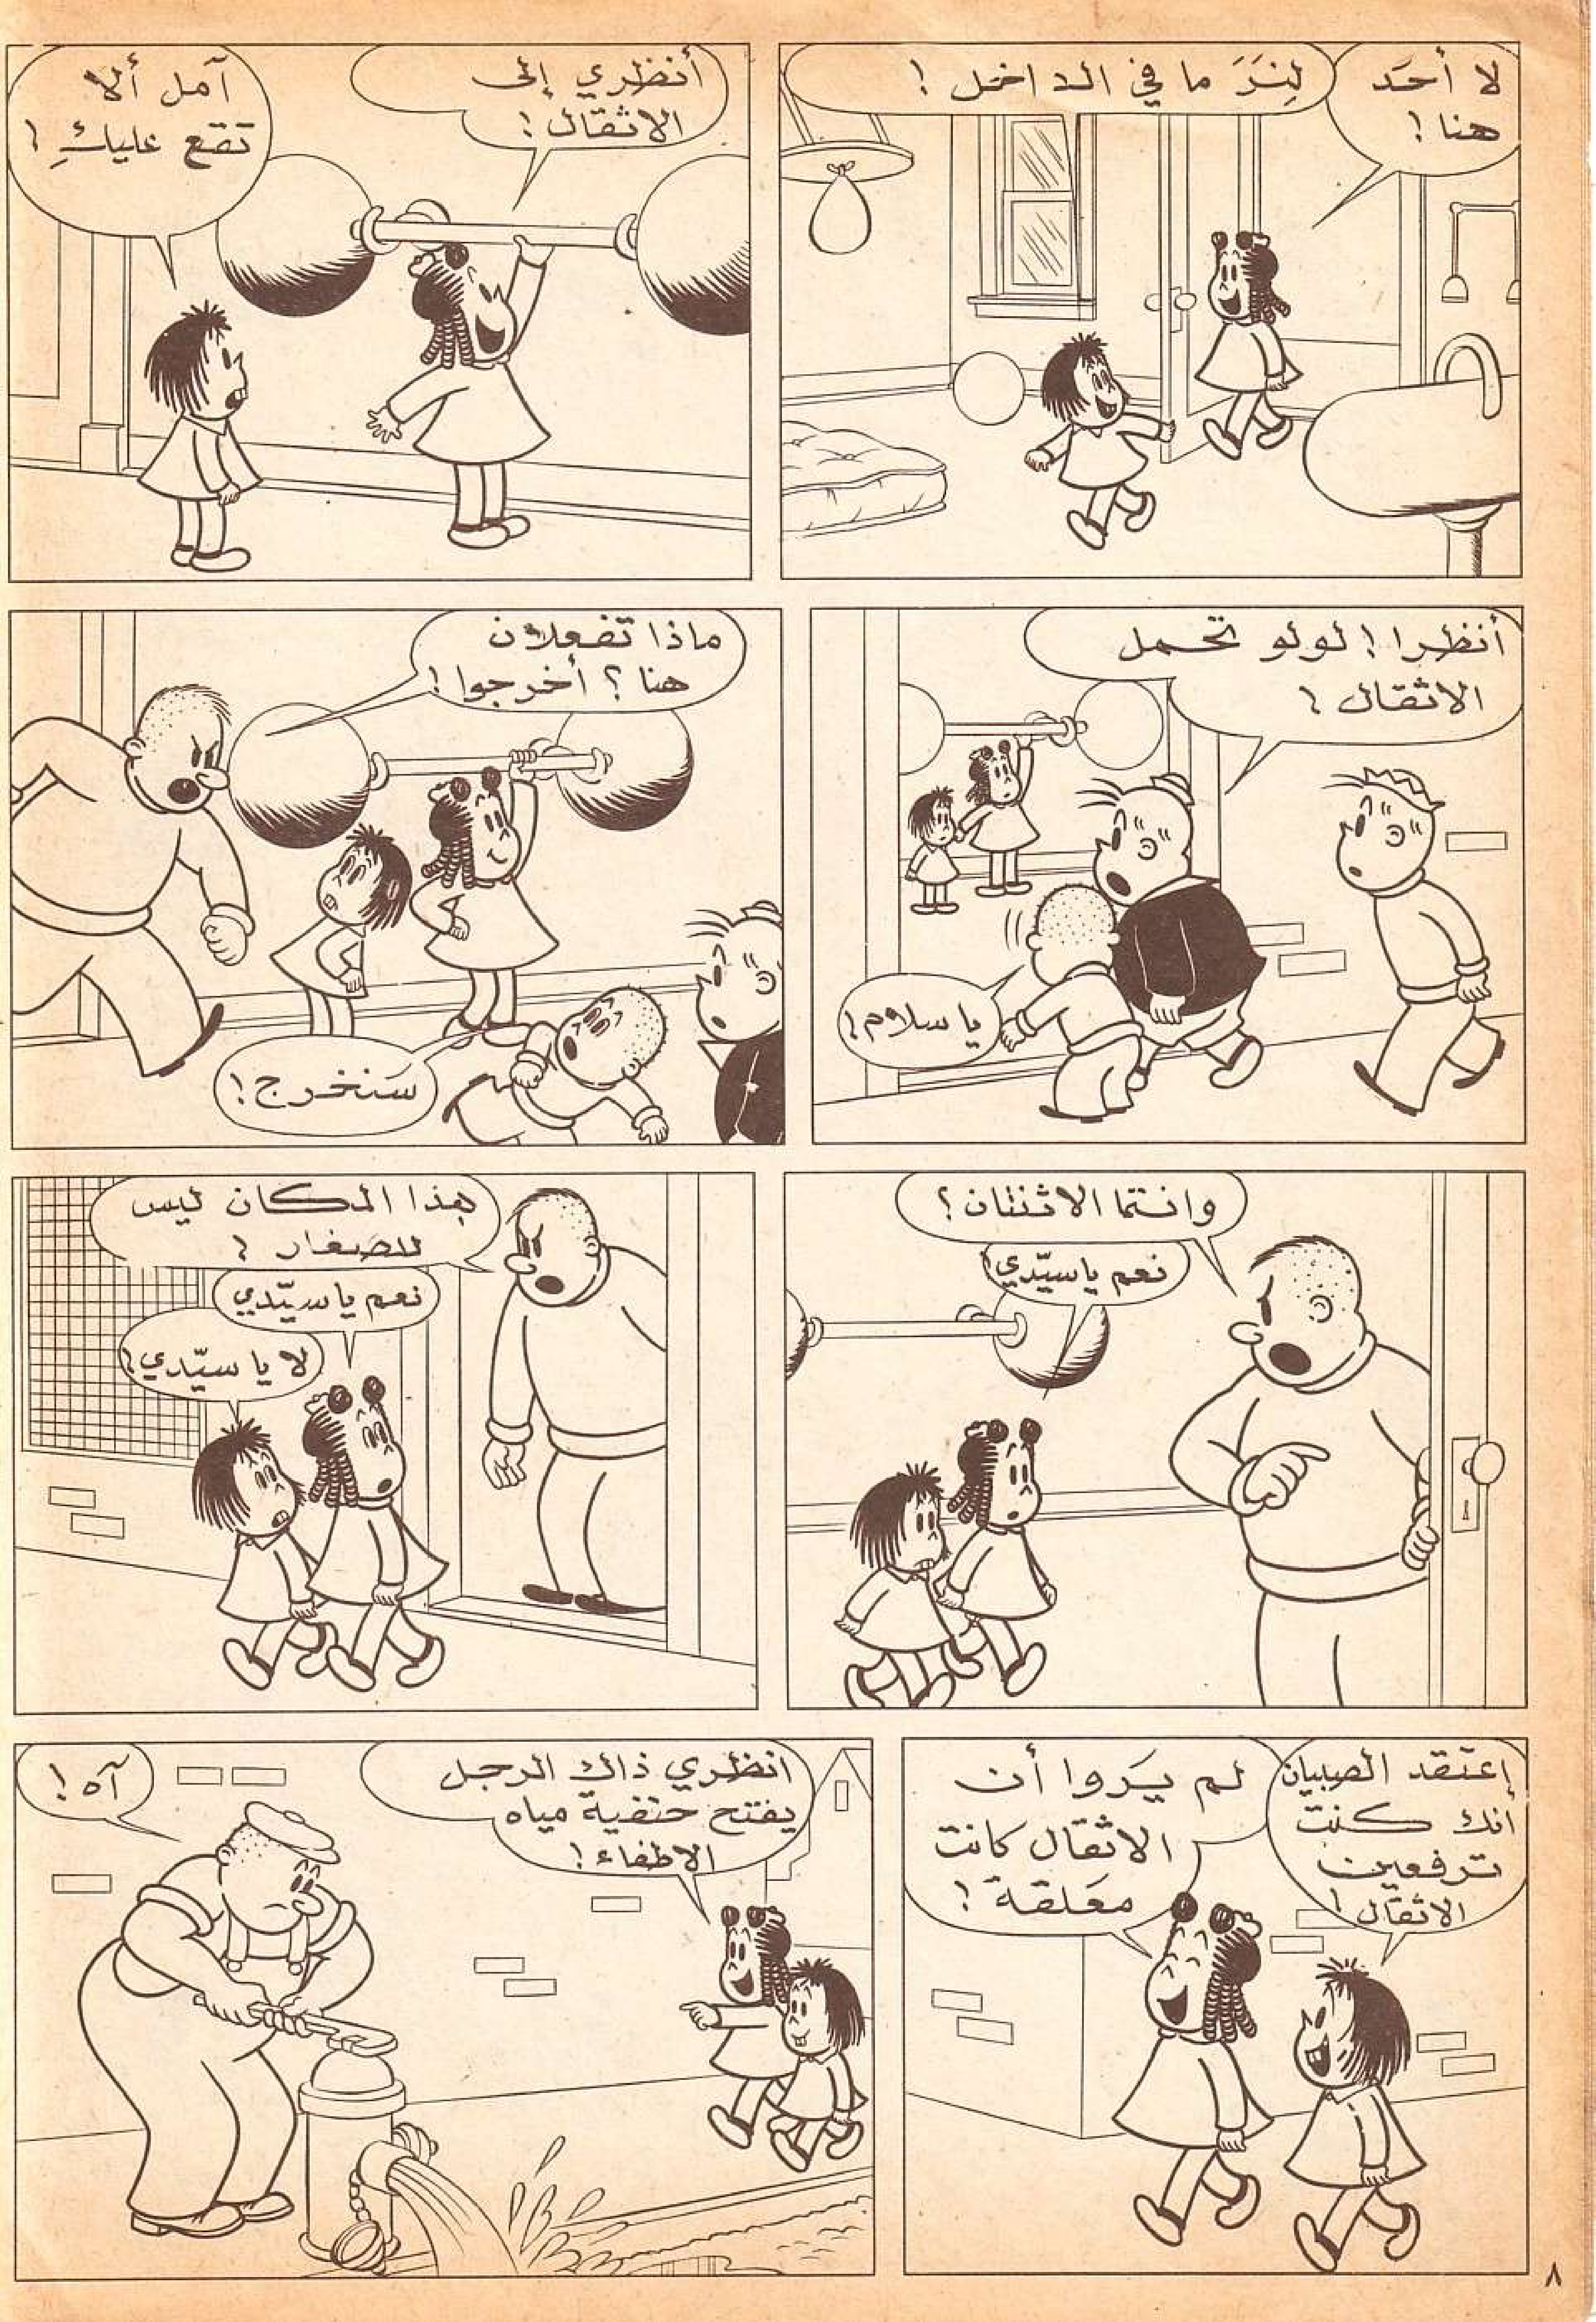 لا أحَد
هنا!
لِنَرَ ما في الداخل!
أنظري إلى
الاثقال!
آمل ألا
تقع عليكِ!
أنظرا! لولو تحمل
الاثقال!
يا سلام!
ماذا تفعلان
هنا؟ أخرجوا!
سَنخرج!
وانتما الاثنتان؟
نعم يا سيّدي!
هذا المكان ليس
للصغار!
نعم يا سيّدي
لا يا سيّدي!
إعتقد الصبيان
انك كنت
ترفعين
الاثقال!
لم يَروا أن
الاثقال كانت
مَعلقة!
انظري ذاك الرجل
يفتح حنفية مياه
الاطفاء!
آه!
٨